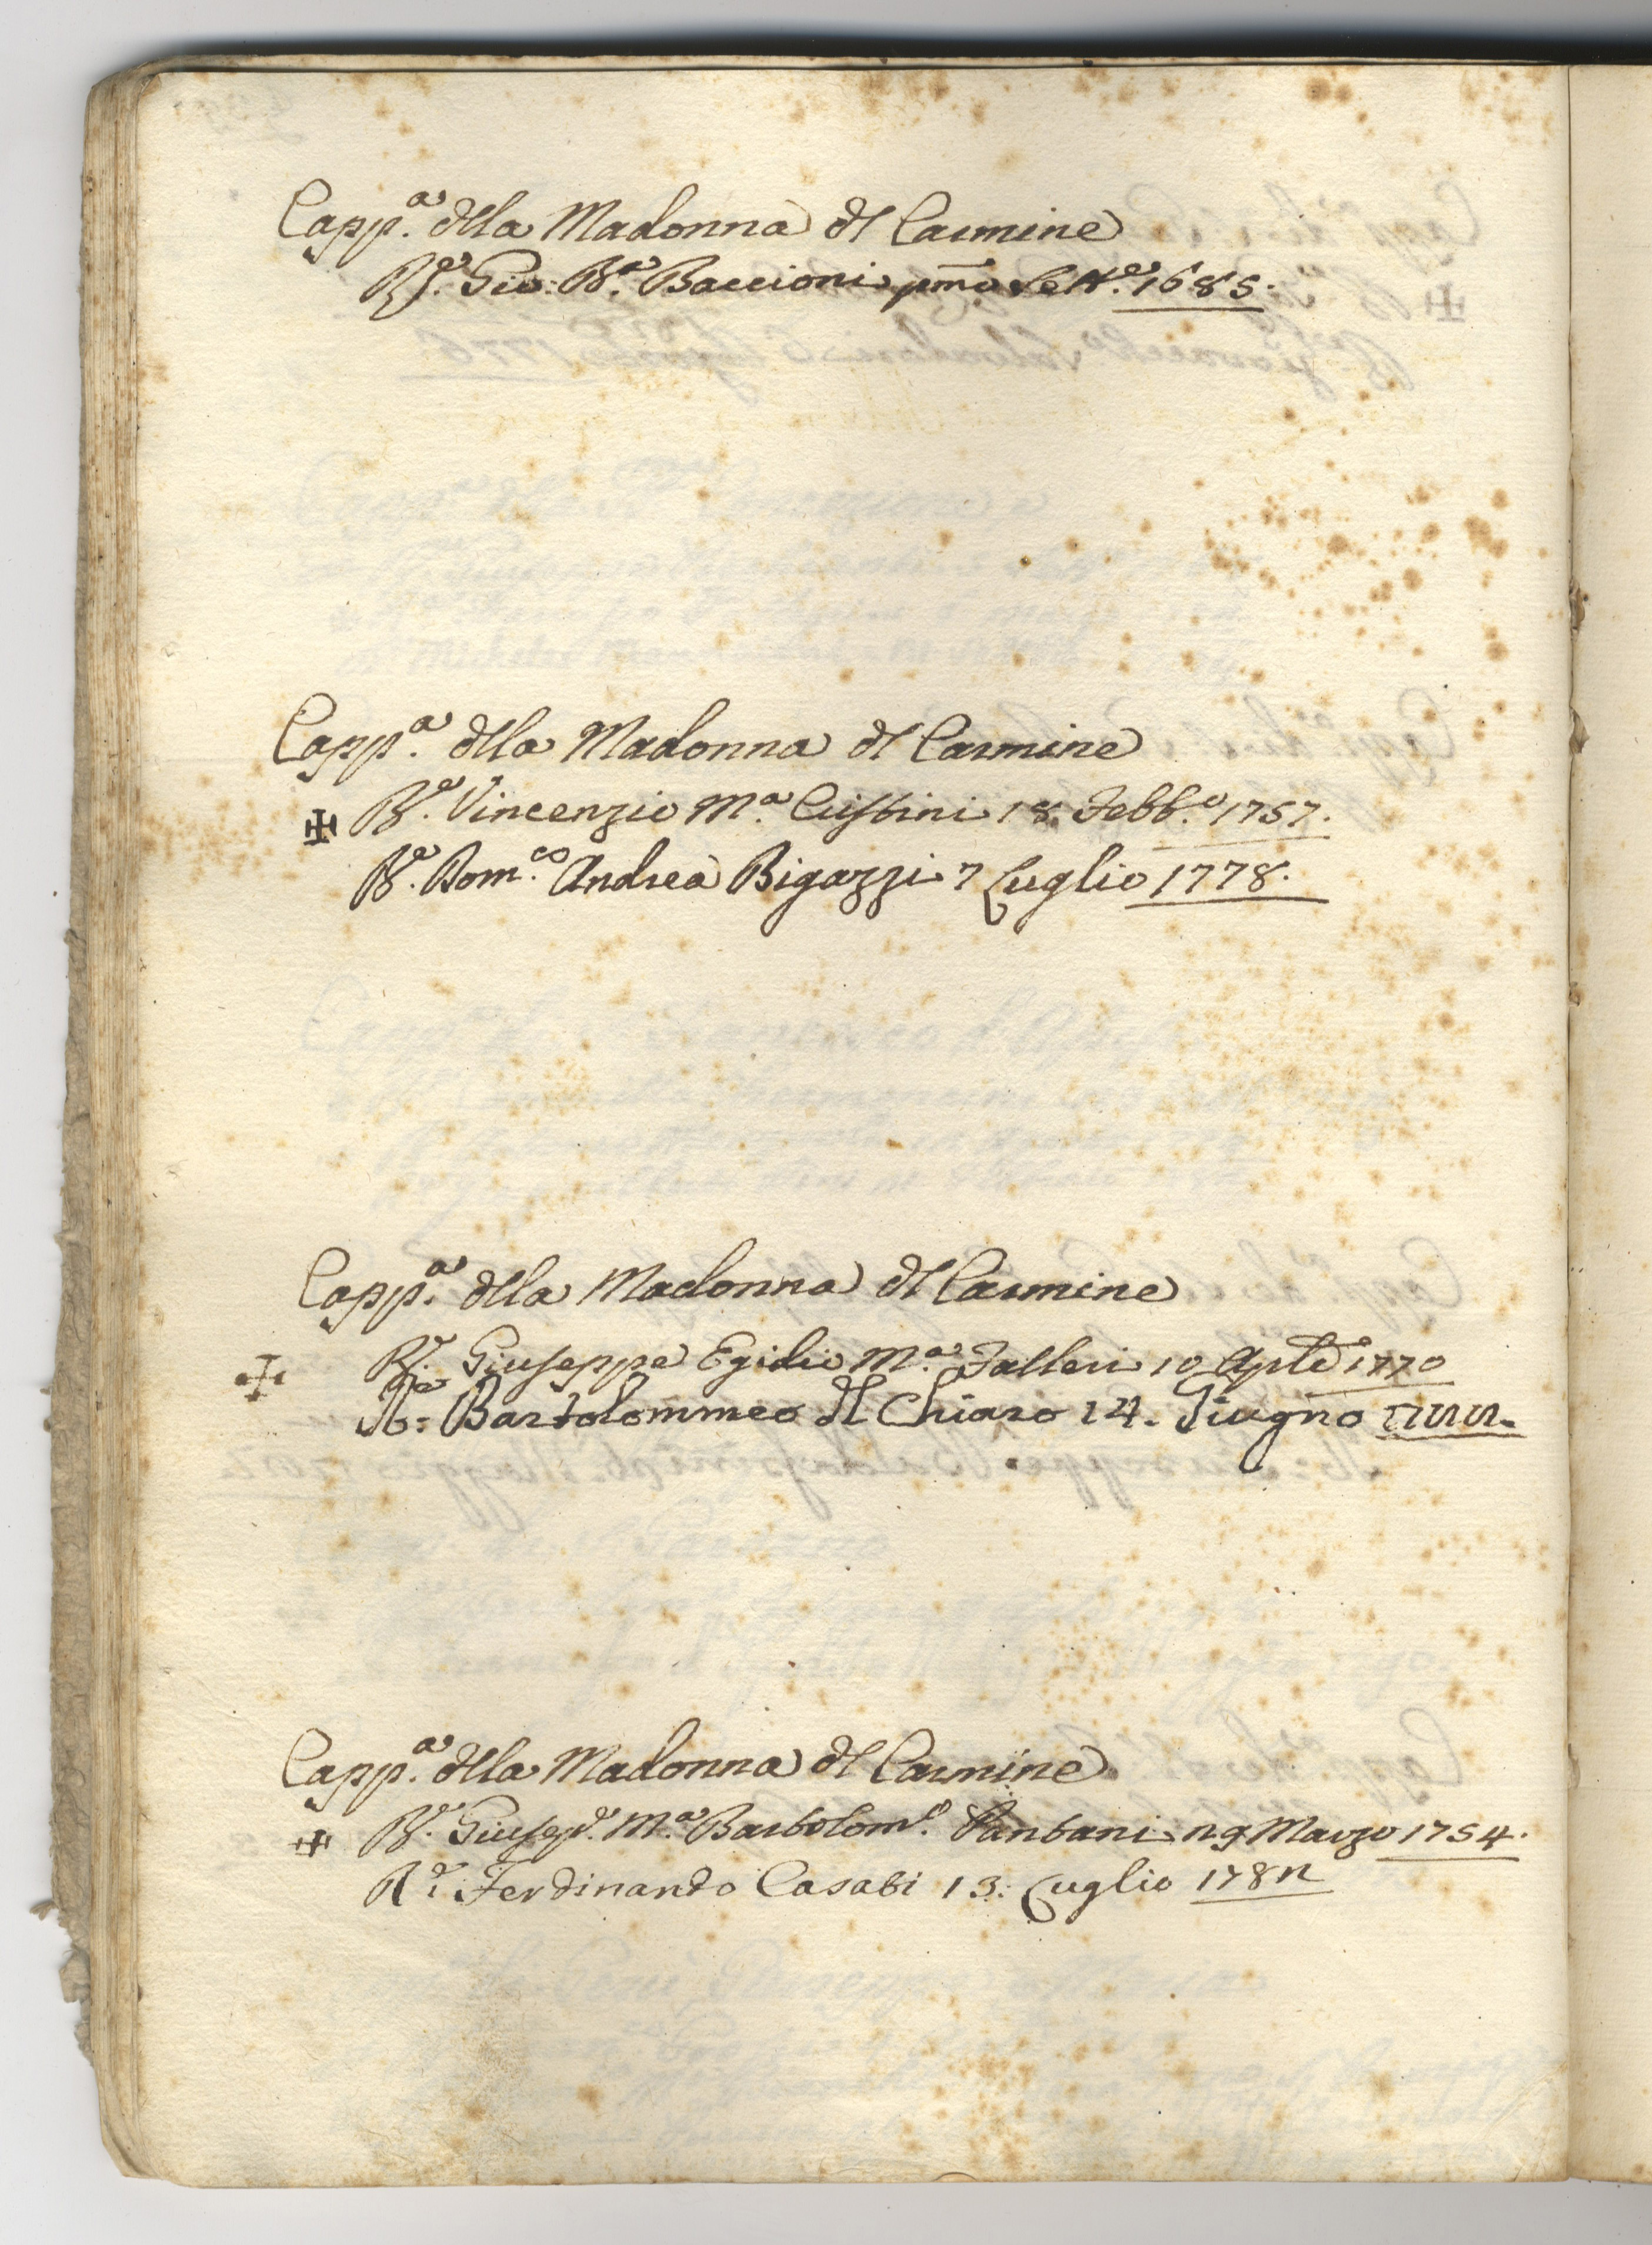 Capp.a della Madonna del Carmine
R.e Gio: B.a Baccioni pmo Sett.e 1685.
Capp.a della Madonna del Carmine
✠ R.e Vincenzio M.a Cristini 18. Febb.o 1757.
R.e Dom.co Andrea Bigazzi 7 Luglio 1778.
Capp.a della Madonna del Carmine
✠ R.e Giuseppe Egidio M.a Falleri 10 Aple 1770
Re: Bartolommeo del Chiaro 14. Giugno
Capp.a della Madonna del Carmine
✠ R.e Giusep.e M.a Bartolom.o 29 Marzo 1754.
R.e Ferdinando Casati 13: Luglio 1782